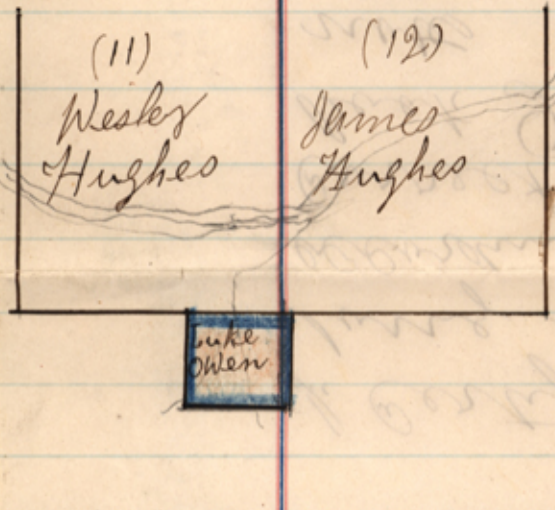 (11)
Wesley
Hughes
(12)
James
Hughes
Luke
Owen